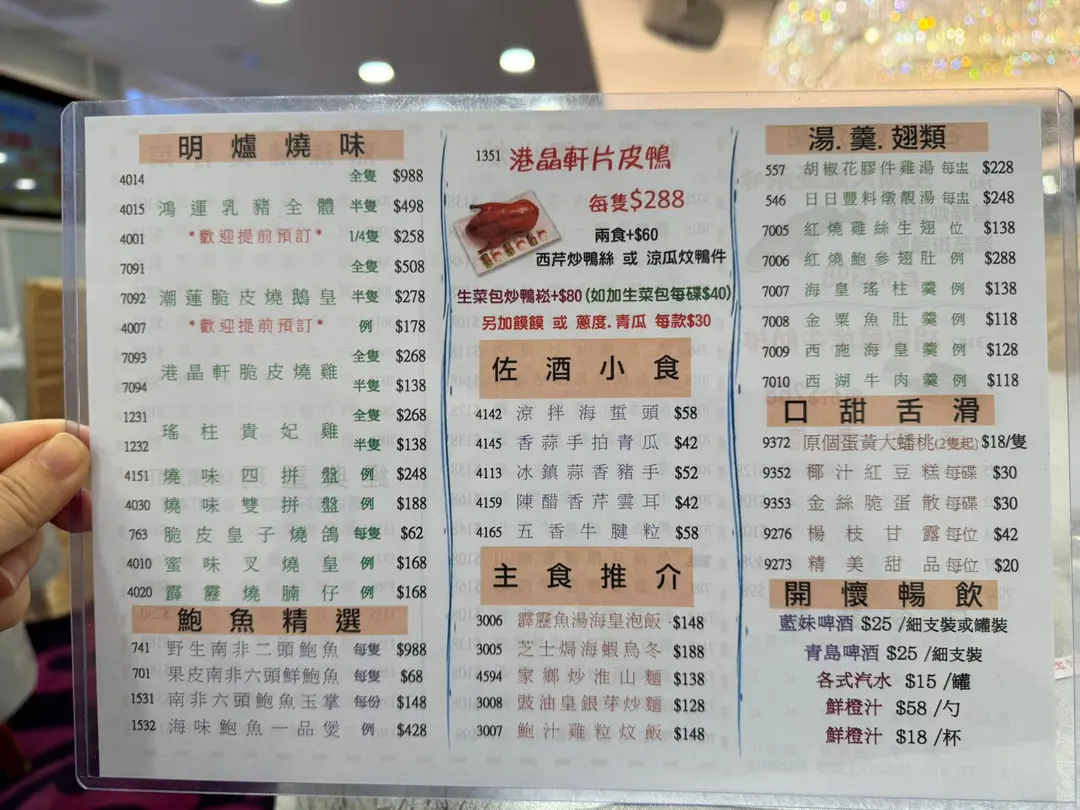 明爐燒味
4014 全隻 $988
4015 鴻運乳豬全體 半隻 $498
4001 *歡迎提前預訂* 1/4隻 $258
7091 全隻 $508
7092 潮蓮脆皮燒鵝皇 半隻 $278
4007 *歡迎提前預訂* 例 $178
7093 全隻 $268
港晶軒脆皮燒雞
7094 半隻 $138
1231 全隻 $268
瑤柱貴妃雞
1232 半隻 $138
4151 燒味四拼盤 例 $248
4030 燒味雙拼盤 例 $188
763 脆皮皇子燒鴿 每隻 $62
4010 蜜味叉燒皇 例 $168
4020 霹靂燒腩仔 例 $168
鮑魚精選
741 野生南非二頭鮑魚 每隻 $988
701 果皮南非六頭鮮鮑魚 每隻 $68
1531 南非六頭鮑魚玉掌 每份 $148
1532 海味鮑魚一品煲 例 $428
1351 港晶軒片皮鴨
每隻$288
兩食+$60
西芹炒鴨絲 或 涼瓜炆鴨件
生菜包炒鴨崧+$80 (如加生菜包每碟$40)
另加饃饃 或 蔥度.青瓜 每款$30
佐酒小食
4142 涼拌海蜇頭 $58
4145 香蒜手拍青瓜 $42
4113 冰鎮蒜香豬手 $52
4159 陳醋香芹雲耳 $42
4165 五香牛腱粒 $58
主食推介
3006 霹靂魚湯海皇泡飯 $148
3005 芝士焗海蝦烏冬 $188
4594 家鄉炒淮山麵 $138
3008 豉油皇銀芽炒麵 $128
3007 鮑汁雞粒炆飯 $148
湯.羹.翅類
557 胡椒花膠件雞湯 每盅 $228
546 日日豐料燉靚湯 每盅 $248
7005 紅燒雞絲生翅 位 $138
7006 紅燒鮑參翅肚 例 $288
7007 海皇瑤柱羹 例 $138
7008 金粟魚肚羹 例 $118
7009 西施海皇羹 例 $128
7010 西湖牛肉羹 例 $118
口甜舌滑
9372 原個蛋黃大蟠桃(2隻起) $18/隻
9352 椰汁紅豆糕 每碟 $30
9353 金絲脆蛋散 每碟 $30
9276 楊枝甘露 每位 $42
9273 精美甜品 每位 $20
開懷暢飲
藍妹啤酒 $25 /細支裝或罐裝
青島啤酒 $25 /細支裝
各式汽水 $15 /罐
鮮橙汁 $58 /勺
鮮橙汁 $18 /杯